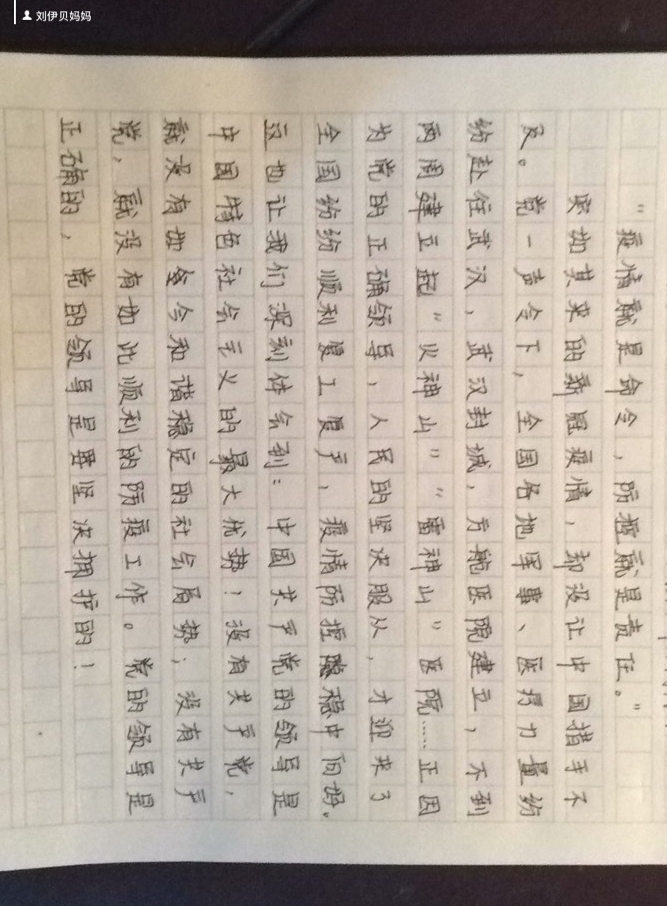 刘伊贝妈妈
“疫情就是命令，防控就是责任。”
突如其来的新冠疫情，却没让中国措手不
及。党一声令下，全国各地军事、医疗力量纷
纷赴往武汉，武汉封城，方舱医院建立，不到
两周建立起“火神山”“雷神山”医院……正因
为党的正确领导，人民的坚决服从，才迎来了
全国纷纷顺利复工复产，疫情防控稳中向好。
这也让我们深刻体会到：中国共产党的领导是
中国特色社会主义的最大优势！没有共产党，
就没有如今和谐稳定的社会局势；没有共产
党，就没有如此顺利的防疫工作。党的领导是
正确的，党的领导是要坚决拥护的！